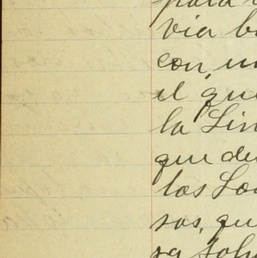 para
via b
con, un
el que
la Lin
que de
las Lo
sos, qu
sa sob